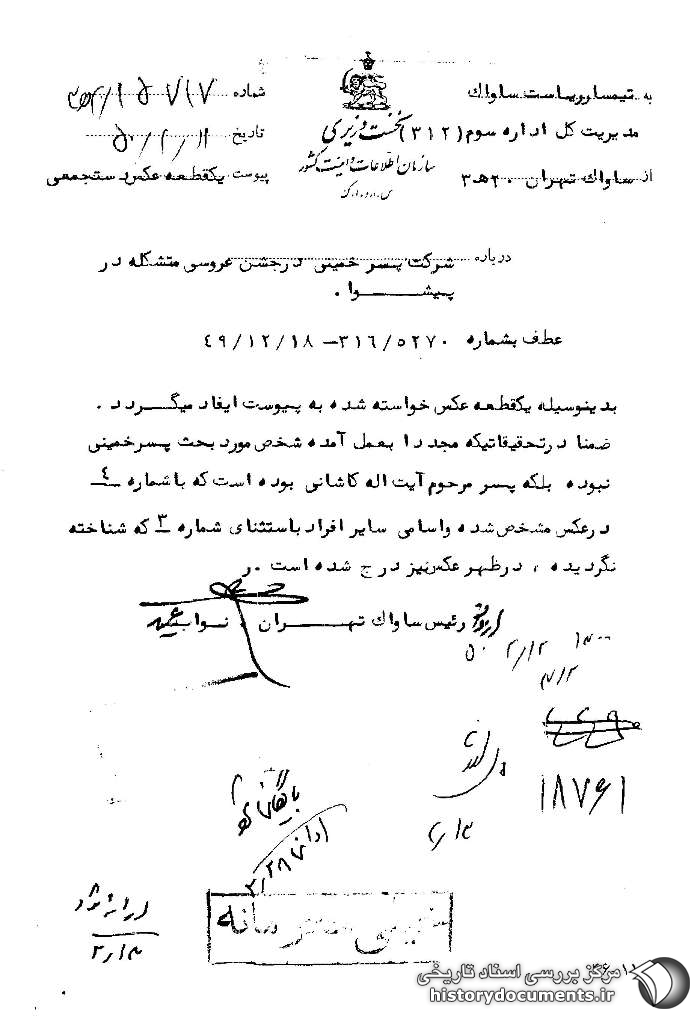 به تیمسار ریاست ساواک
مدیریت کل اداره سوم (۳۱۲)
از ساواک تهران ۲۰ ه ۳
نخست وزیری
سازمان اطلاعات و امنیت کشور
س.ا.و.ا.ک
شماره
تاریخ ۵۰/۲/۱۱
پیوست یکقطعه عکس دستجمعی
درباره شرکت پسر خمینی در جشن عروسی متشکله در
پیشوا .
عطف بشماره ۳۱۶/۵۲۷۰ - ۴۹/۱۲/۱۸
بدینوسیله یکقطعه عکس خواسته شده به پیوست ایفاد میگردد .
ضمنا در تحقیقاتیکه مجددا بعمل آمده شخص مورد بحث پسر خمینی
نبوده بلکه پسر مرحوم آیت اله کاشانی بوده است که با شماره ٤
در عکس مشخص شده و اسامی سایر افراد باستثنای شماره ۳ که شناخته
نگردیده ، در ظهر عکس نیز درج شده است .ر
رئیس ساواک تهران . نواب
۵۰ ۲/۱۲
۱۸۷۶۱
بایگانی
۲/۲۸
۲/۱۳
خیلی محرمانه
مرکز بررسی اسناد تاریخی
historydocuments.ir